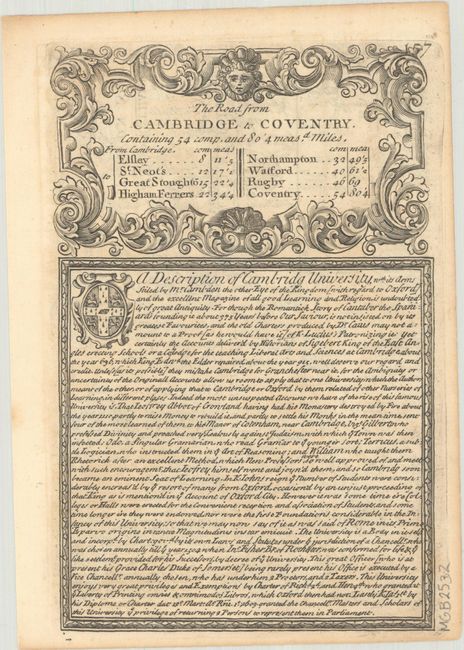 57
The Road from
CAMBRIDGE to COVENTRY.
Containing 54 comp. and 80'4 meas.d Miles.
From Cambridge. com meas com mea
to Elsley 8 11'5 Northampton 32 49'5
St. Neots 12 17'2 Watford 40 61'2
Great Stoughto 15 22'4 Rugby 46 69
Higham Ferrers 22 34'4 Coventry 54 80'4
A Description of Cambridg University, wth its Arms
stiled by Mr. Cambden the other Eye of the Kingdom (wth regard to Oxford)
and the excellent Magazine of all good Learning and Religion, is undoubted
ly of great Antiquity. For though the Romantick Story of Cantaber the Spani
ard founding it about 375 Years before Our Saviour, is not insisted on by its
greatest Favourites, and the old Charters produced by Dr. Caius may not a
mount to a Proof (as he would have it) of K. Lucius's Patronizing it: Yet
certainly the Accounts deliver'd by Historians of Sigebert King of the East An
gles erecting Schools or a Colledge for the teaching Liberal Arts and Sciences at Cambridge about
the year 636, which King Edward the Elder repaired about the year 915, well deserve our regard and
credit. Unless (as is possible) they mistake Cambridge for Granchester near it, for the Ambiguity or
uncertainty of the Original Accounts allow us room to apply that to one University which the Author
means of the other or of applying that to Cambridg or Oxford by them related of other Nurseries of
Learning in different places. Indeed the most unsuspected Account we have of the rise of this famous
University is That Jeoffrey Abbot of Croyland having had his Monastery destroyed by Fire about
the year 1109 partly to raise Money to rebuild it, and partly to settle his Monks in the mean time, sent
four of the more learned of them to his Manor of Cotenham, near Cambridge, Viz. Gilbert who
professed Divinity and preached very zealously against Judaism with which yt Town was then
infected; Odo, a Singular Gramarian, who read Gramar to ye younger sort; Terricus, a sub
tle Logician, who instructed them in ye Art of Reasoning; and William who taught them
Rhetorick after an excellent Method, which New Professors so well approved of, and meet
with such encouragemt, that Jeoffrey himself went and joyn'd them, and so Cambridg soon
became an eminent Seat of Learning. In K. John's reign ye Number of Students were consi
derably encreas'd by ye resort of many from Oxford, occasioned by an unjust proceeding of
that King as is mention'd in ye Account of Oxford City. However it was some time ere Col
leges or Halls were erected for the Convenient reception and association of Students, and some
time longer ere they were endowed: nor were the first Foundations considerable. In the In
fancy of this University; so that we may now say of it as was said of ROME in its Prime
Ab parvo origine orta in eam Magnitudinem ut jam emicuit. The University is a Body in its self
and incorp.d by Charter, govern'd by its own Laws and Statutes under ye jurisdiction of a Chancellr. Who
was chosen annually till ye year 1504, when Dr. Fisher Bp. of Rochester was confirmed for life & ye
like settlemt. provided for his Successors, by decree of ye University. This great Office (who is at
present his Grace Charles Duke of Somerset) being rarely present his Office is executed by a
Vice Chancellr. annually chosen, who has under him 2 Proctors, and 2 Taxers. This University
enjoys very great priviledges and Exemptions by Charter of Richd. 2d. and Henry 8th. who granted it
ye Liberty of Printing omnes & omnimodos Libros, which Oxford then had not. Lastly K. Jas. 1st. by
his Diploma or Charter dat. 12 March Ao. Rni. 1. 1603. granted the Chancellr. Masters and Scholars of
this University ye priviledge of returning 2 Persons to represent them in Parliament.
MGB2532